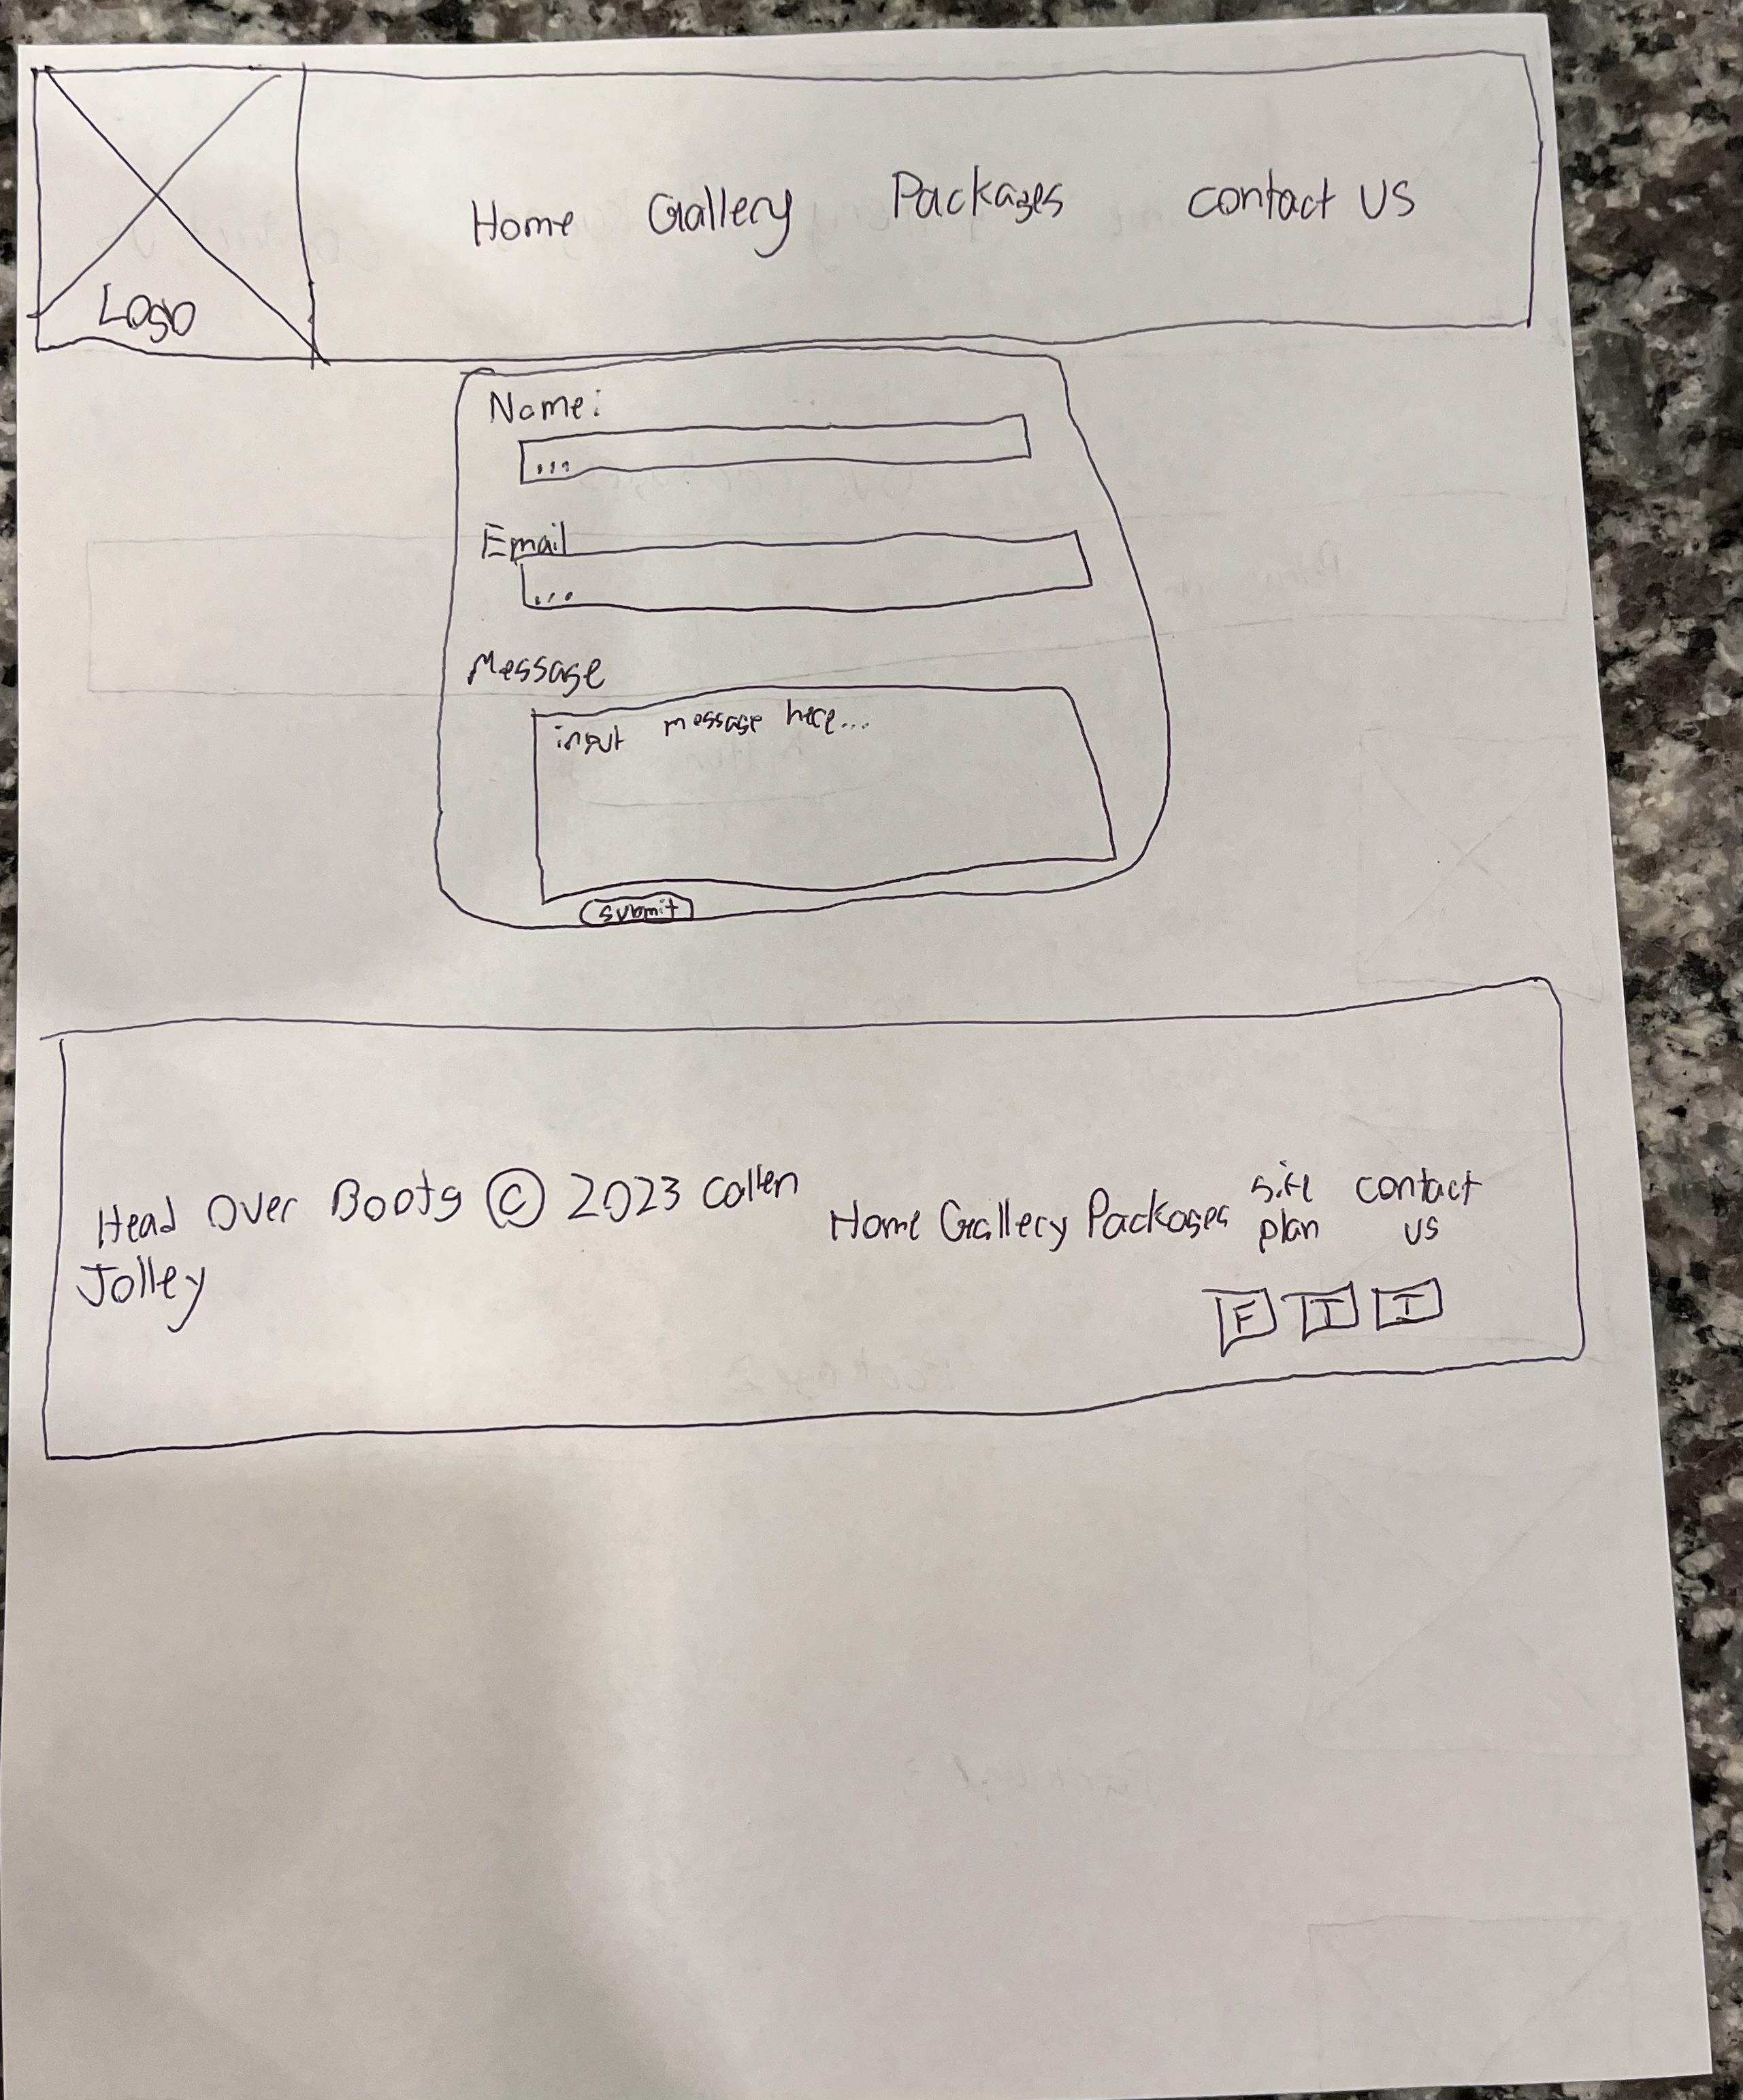 Logo
Home Gallery Packages contact us
Name:
...
Email
...
Message
input message here...
submit
Head Over Boots © 2023 Collen
Jolley
Home Gallery Packages site plan contact us
F I I